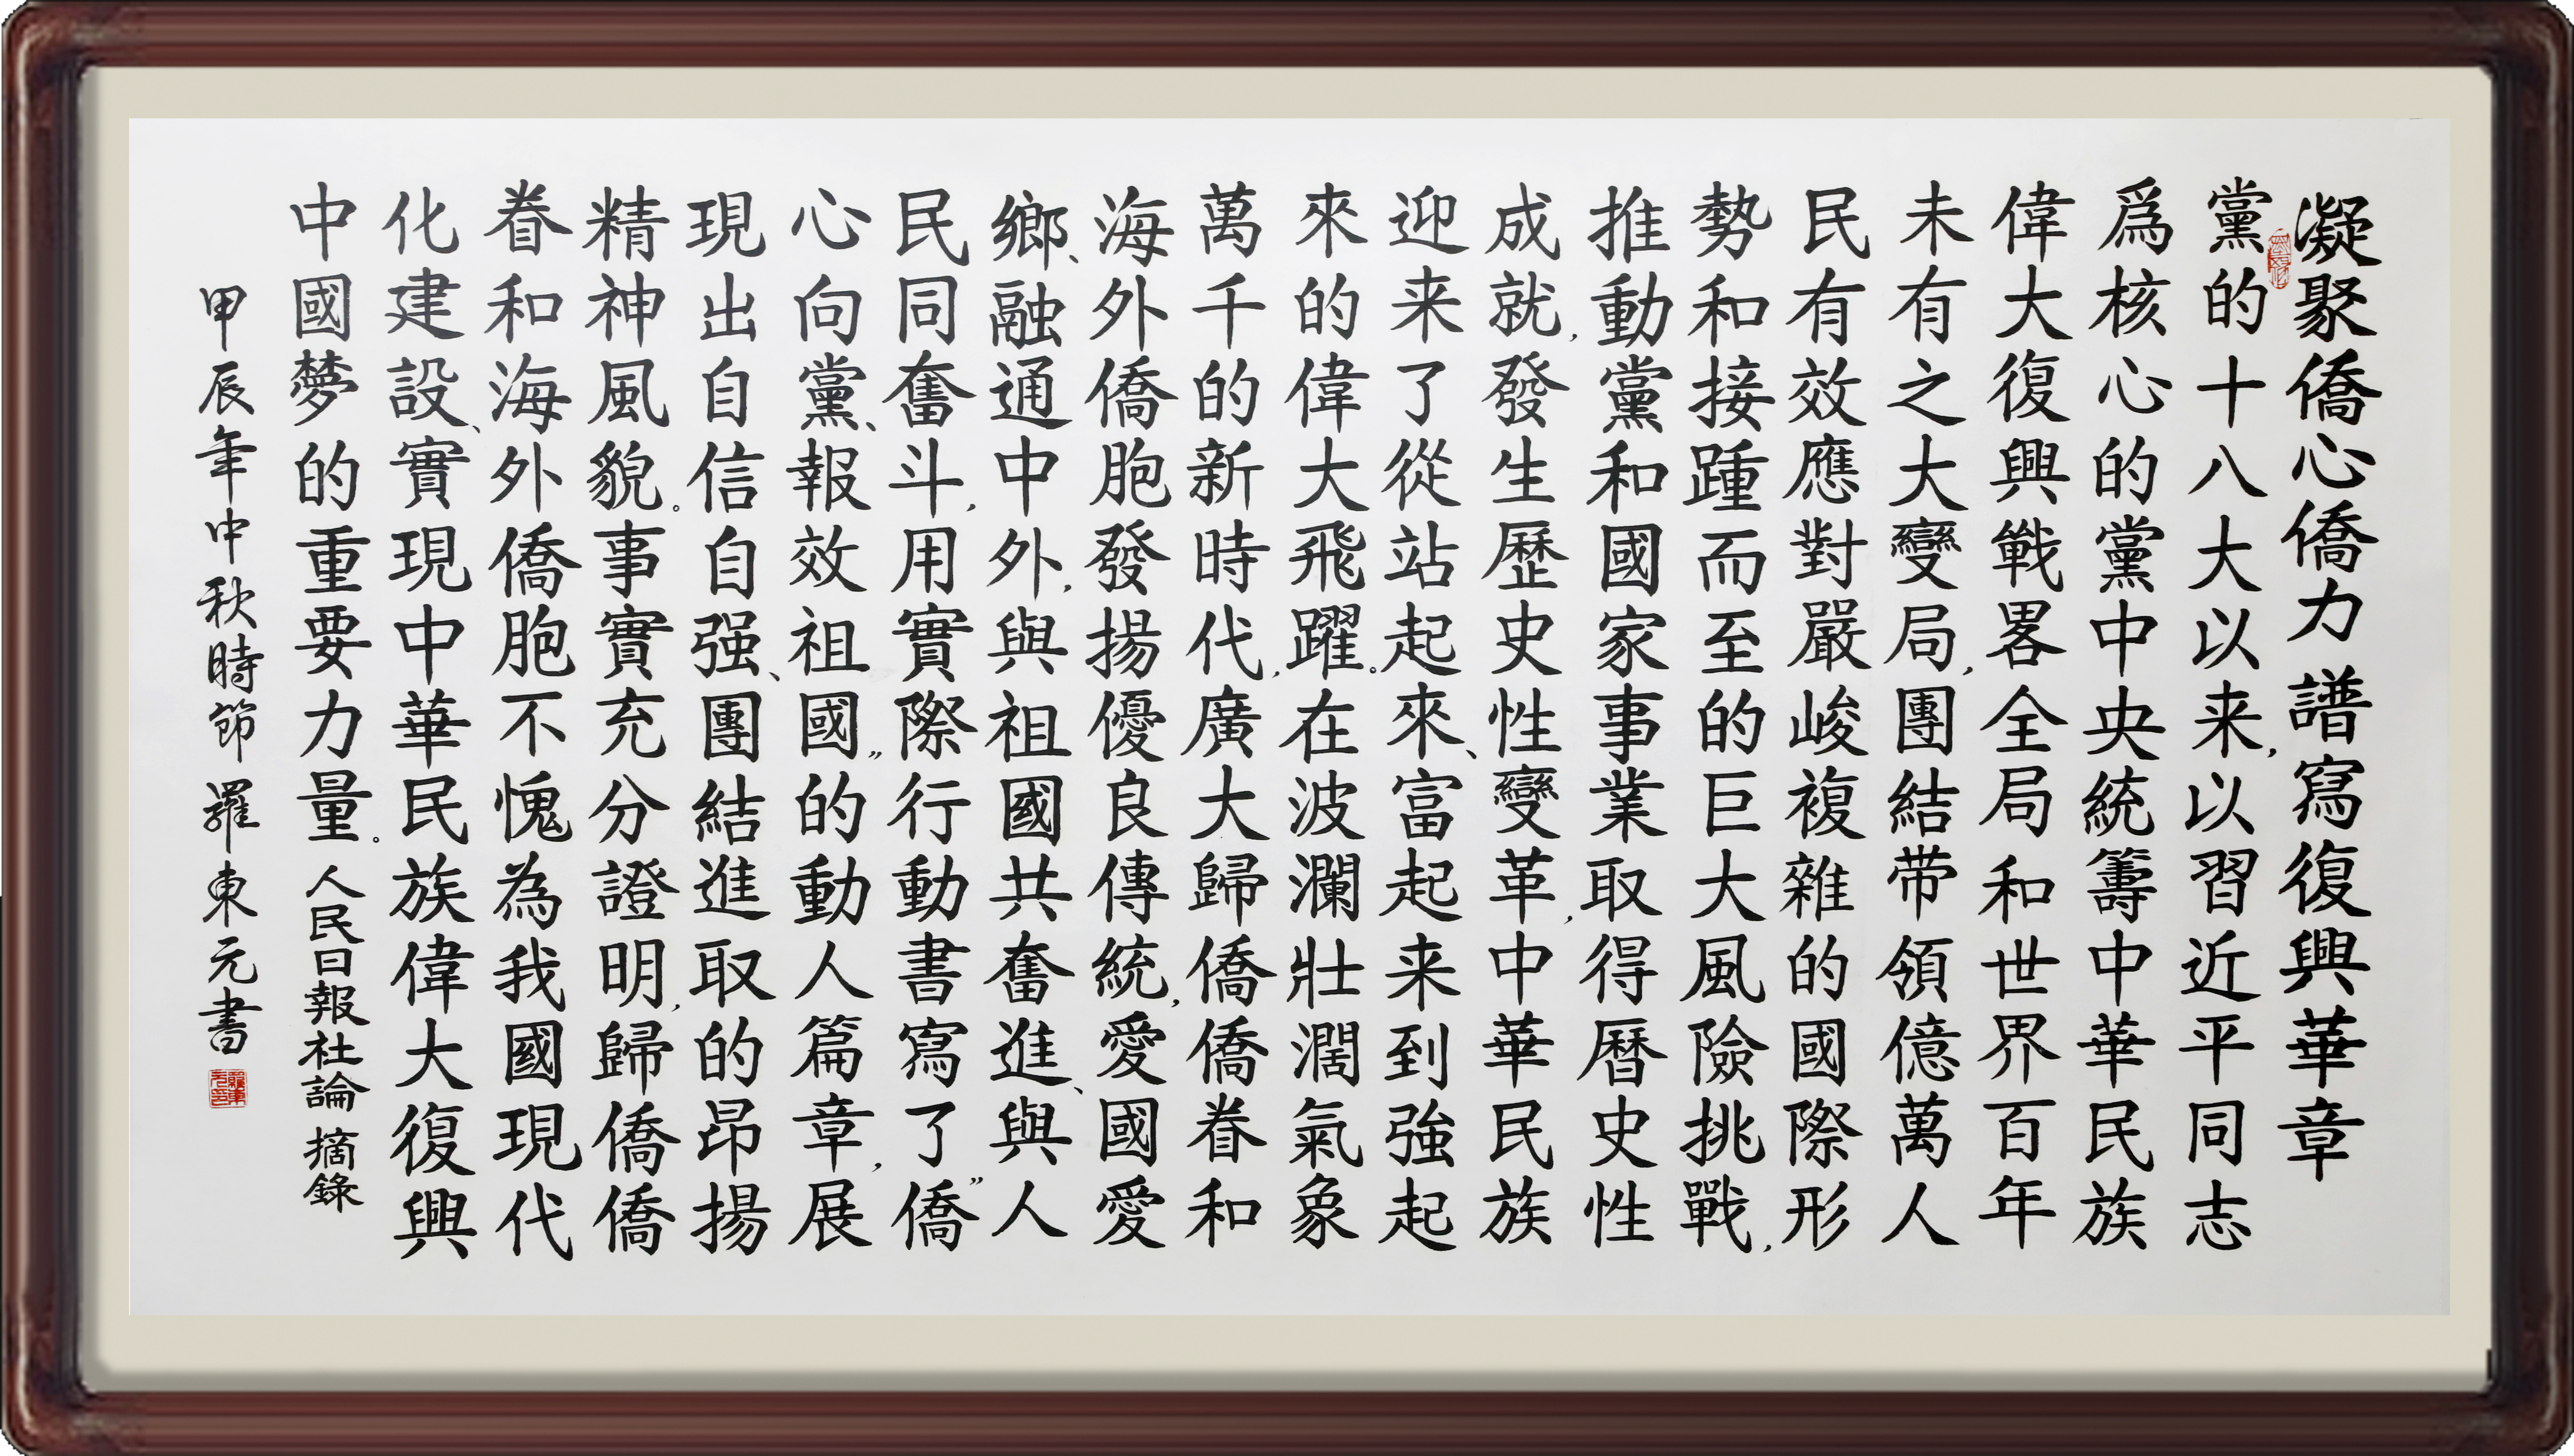 凝聚僑心僑力譜寫復興華章
黨的十八大以来，以習近平同志
爲核心的黨中央統籌中華民族
偉大復興戰畧全局和世界百年
未有之大變局，團結带領億萬人
民有效應對嚴峻複雜的國際形
勢和接踵而至的巨大風險挑戰，
推動黨和國家事業取得暦史性
成就，發生歷史性變革，中華民族
迎来了從站起來、富起来到強起
來的偉大飛躍。在波瀾壯濶氣象
萬千的新時代，廣大歸僑僑眷和
海外僑胞發揚優良傳統，愛國愛
鄉、融通中外，與祖國共奮進、與人
民同奮斗，用實際行動書寫了“僑
心向黨、報效祖國”的動人篇章，展
現出自信自强、團結進取的昂揚
精神風貌。事實充分證明，歸僑僑
眷和海外僑胞不愧為我國現代
化建設、實現中華民族偉大復興
中國夢的重要力量。人民日報社論 摘錄
甲辰年中秋時節羅東元書